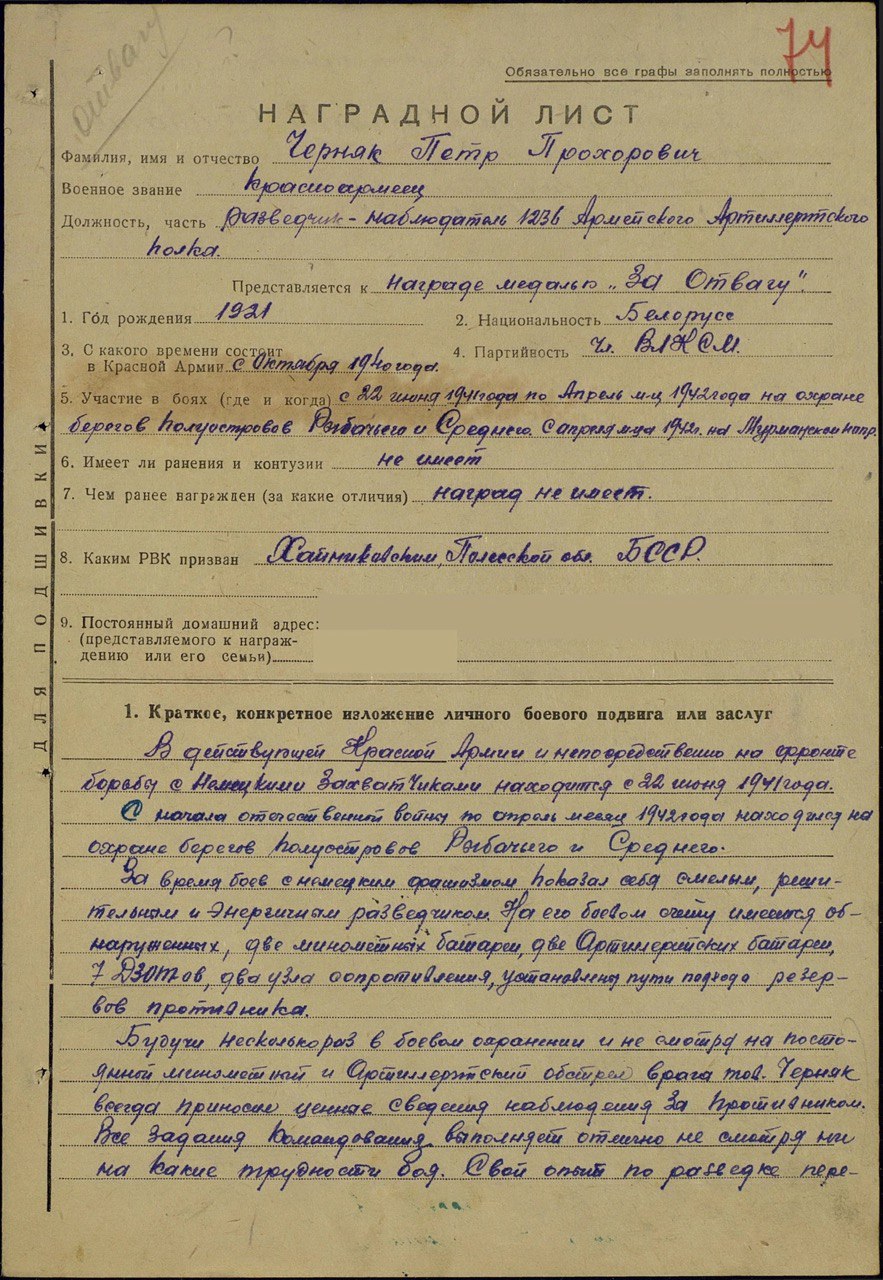 Отвагу
74
Обязательно все графы заполнять полностью
НАГРАДНОЙ ЛИСТ
Фамилия, имя и отчество Черняк Петр Прохорович
Военное звание Красноармеец
Должность, часть Разведчик-наблюдатель 1236 Армейского Артиллерийского
полка.
Представляется к награде медалью „За Отвагу".
1. Год рождения 1921 2. Национальность Белорусс
3. С какого времени состоит
в Красной Армии с Октября 1940 года. 4. Партийность Чл. ВЛКСМ.
5. Участие в боях (где и когда) с 22 июня 1941 года по Апрель м-ц 1942 года на охране
берегов полуостровов Рыбачьего и Среднего. С апреля м-ца 1942г. на Мурманском напр.
6. Имеет ли ранения и контузии не имеет
7. Чем ранее награжден (за какие отличия) наград не имеет.
8. Каким РВК призван Хайниковским, Полесской обл. БССР.
9. Постоянный домашний адрес:
(представляемого к награж-
дению или его семьи)
ДЛЯ ПОДШИВКИ
1. Краткое, конкретное изложение личного боевого подвига или заслуг
В действующей Красной Армии и непосредственно на фронте
борьбы с Немецкими Захватчиками находится с 22 июня 1941 года.
С начала отечественной войны по апрель месяц 1942 года находился на
охране берегов полуостровов Рыбачьего и Среднего.
За время боев с немецким фашизмом показал себя смелым, реши-
тельным и энергичным разведчиком. На его боевом счету имеется об-
наруженных, две минометных батареи, две Артиллерийских батареи,
7 ДЗОТов, два узла сопротивления, установлены пути подхода резер-
вов противника.
Будучи несколько раз в боевом охранении и не смотря на посто-
янный минометный и Артиллерийский обстрел врага тов. Черняк
всегда приносил ценные сведения наблюдения за противником.
Все задания командования выполняет отлично не смотря ни
на какие трудности боя. Свой опыт по разведке пере-